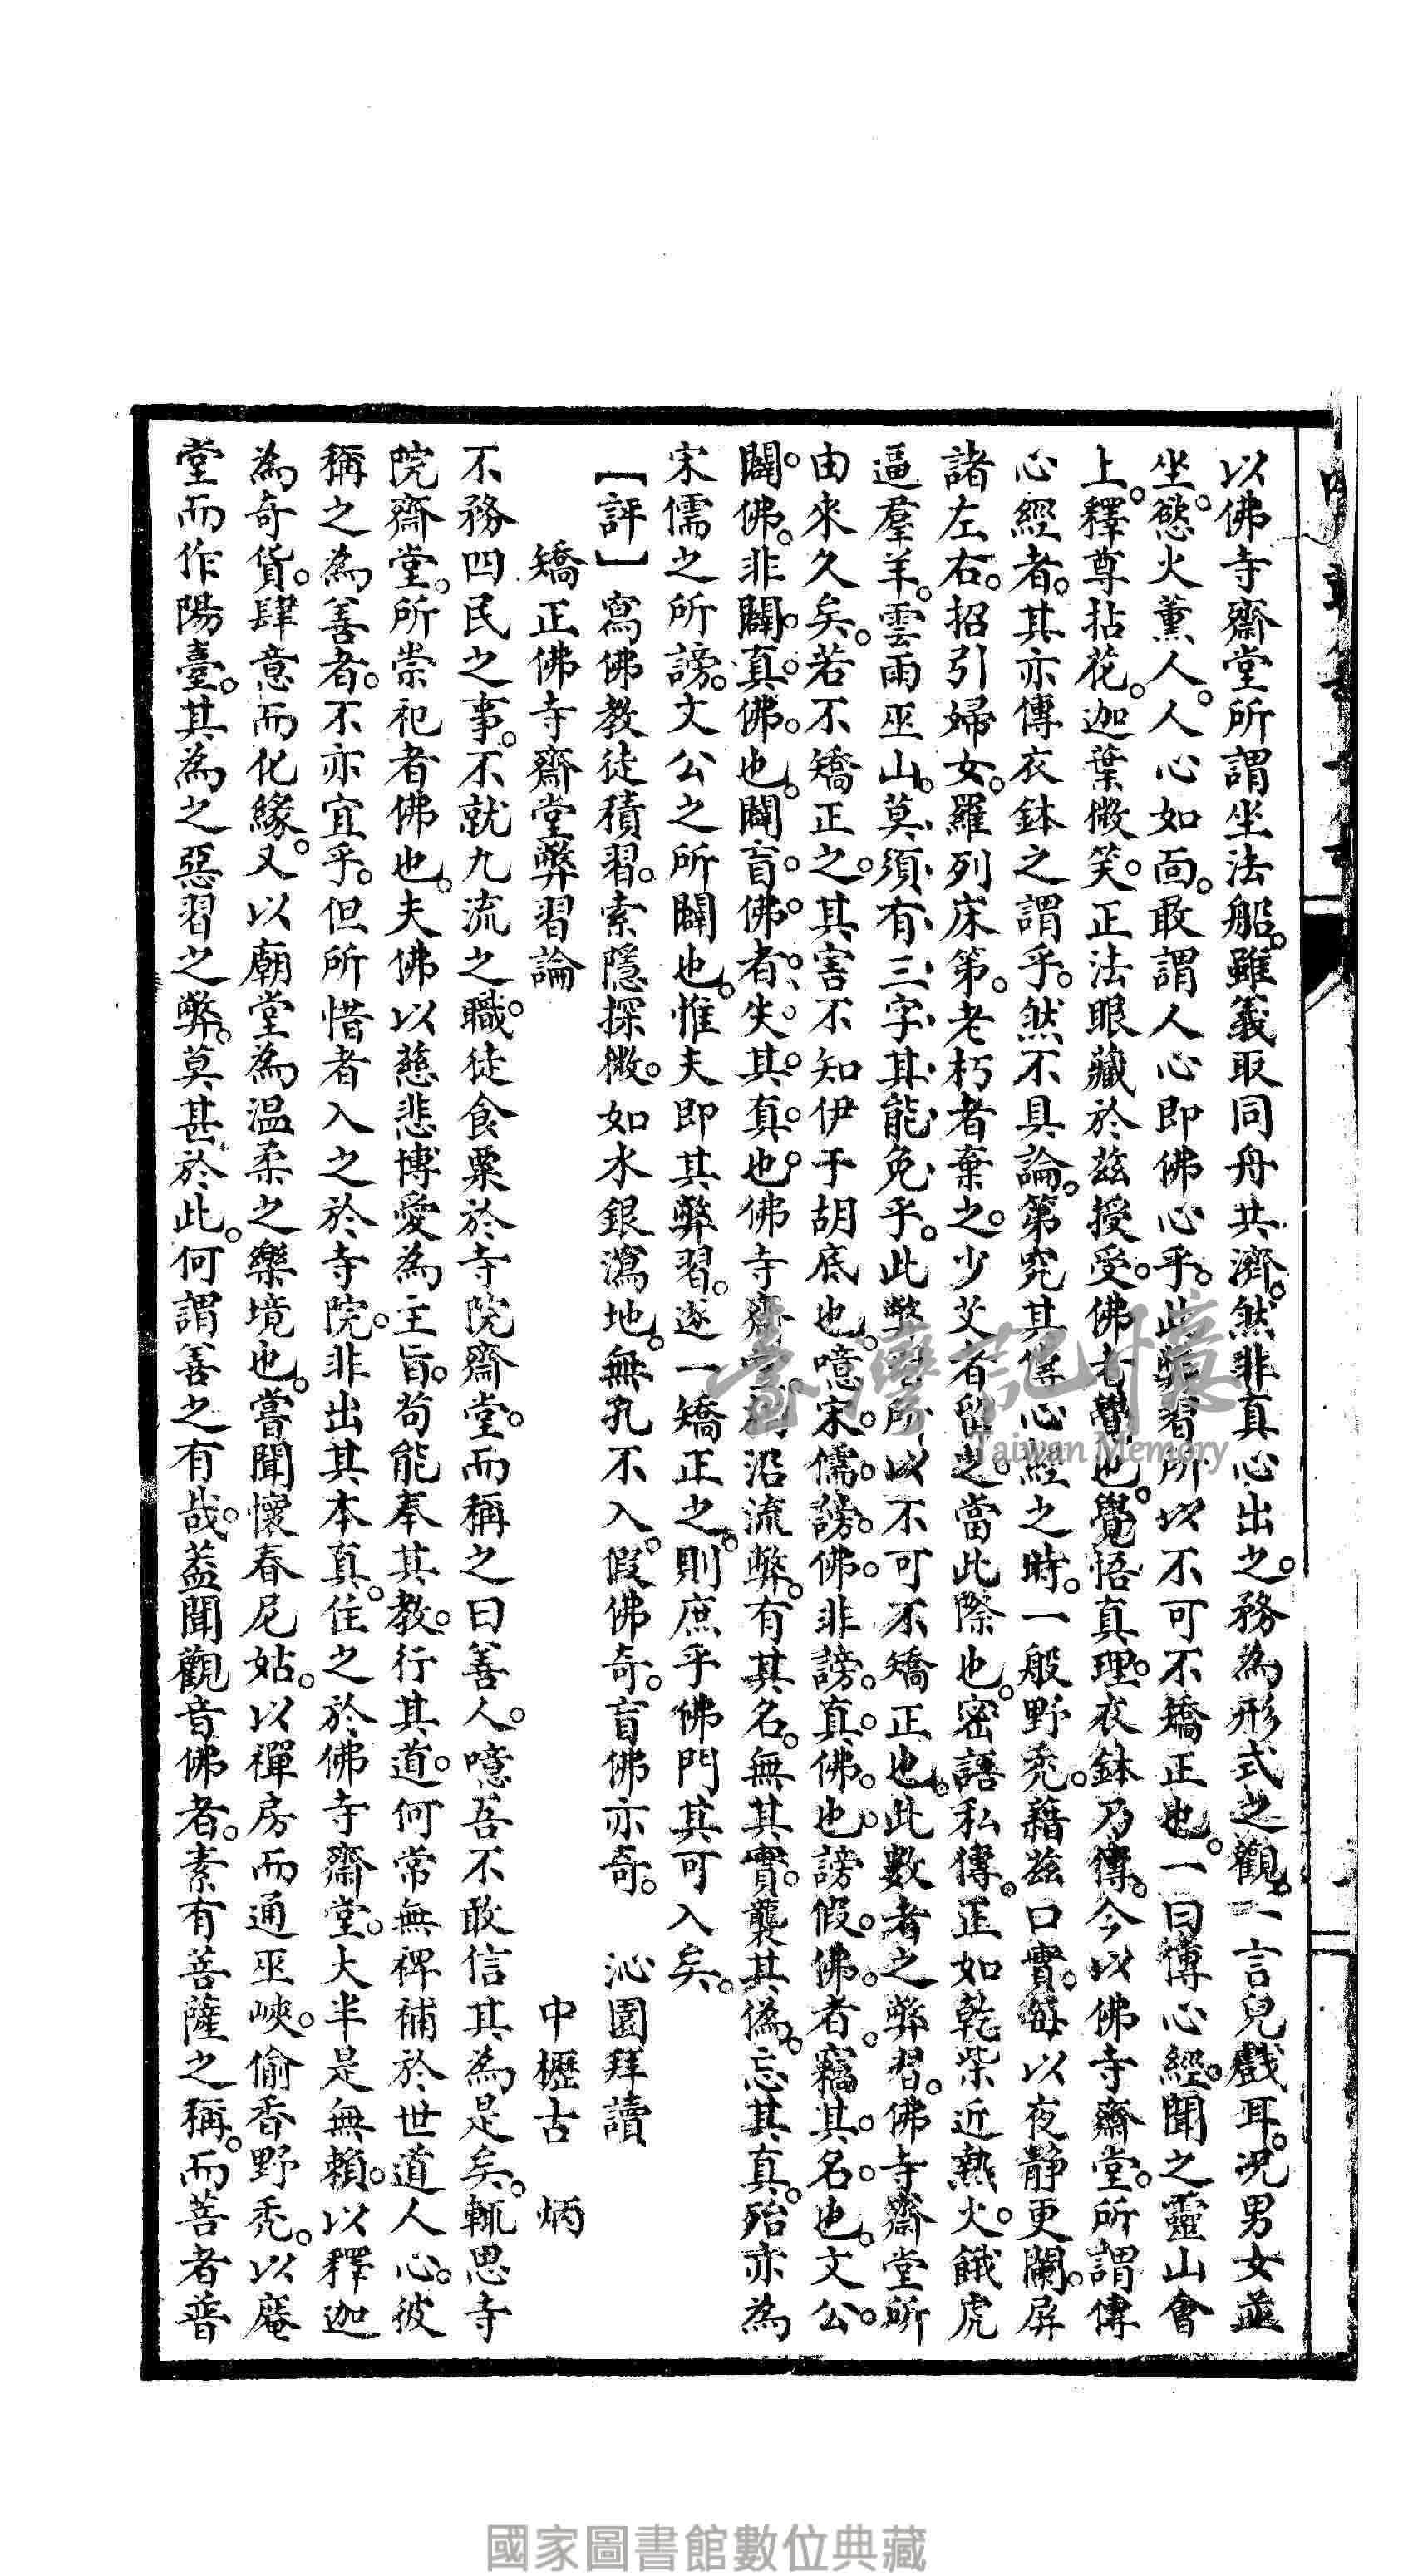 以佛寺齋堂所謂坐法船。雖義取同舟共濟。然非真心出之。務為形式之觀。一言兒戲耳。況男女並
坐。慾火薰人。人心如面。敢謂人心即佛心乎。此弊習所以不可不矯正也。一曰傳心經。聞之靈山會
上。釋尊拈花。迦葉微笑。正法眼藏於茲授受。佛尢覺也。覺悟真理。衣鉢乃傳。今以佛寺齋堂。所謂傳
心經者。其亦傳衣鉢之謂乎。然不具論。第究其傳心經之時。一般野禿。藉茲口實。每以夜靜更闌。屏
諸左右。招引婦女。羅列床第。老朽者棄之。少艾者留之。當此際也。密語私傳。正如乾柴近熱火。餓虎
逼羣羊。雲雨巫山。莫須有三字其能免乎。此弊習所以不可不矯正也。此數者之弊習。佛寺齋堂所
由來久矣。若不矯正之。其害不知伊于胡底也。噫宋儒謗佛。非謗真佛也。謗假佛者。竊其名也。文公
闢佛。非闢真佛也。闢盲佛者。失其真也。佛寺齋堂相沿流弊。有其名。無其實。襲其偽。忘其真。殆亦為
宋儒之所謗。文公之所闢也。惟夫即其弊習。逐一矯正之。則庶乎佛門其可入矣。
【評】寫佛教徒積習。索隱探微。如水銀瀉地。無孔不入。假佛奇。盲佛亦奇。　沁園拜讀
矯正佛寺齋堂弊習論　中櫪古　炳
不務四民之事。不就九流之職。徒食粟於寺院齋堂。而稱之曰善人。噫吾不敢信其為是矣。輒思寺
院齋堂。所崇祀者佛也。夫佛以慈悲博愛為主旨。苟能奉其教。行其道。何常無裨補於世道人心。彼
稱之為善者。不亦宜乎。但所惜者入之於寺院。非出其本真。住之於佛寺齋堂。大半是無賴。以釋迦
為奇貨。肆意而化緣。又以廟堂為温柔之樂境也。嘗聞懷春尼姑。以禪房而通巫峽。偷香野禿。以庵
堂而作陽臺。其為之惡習之弊。莫甚於此。何謂善之有哉。蓋聞觀音佛者。素有菩薩之稱。而菩者普
臺灣記憶
Taiwan Memory
國家圖書館數位典藏